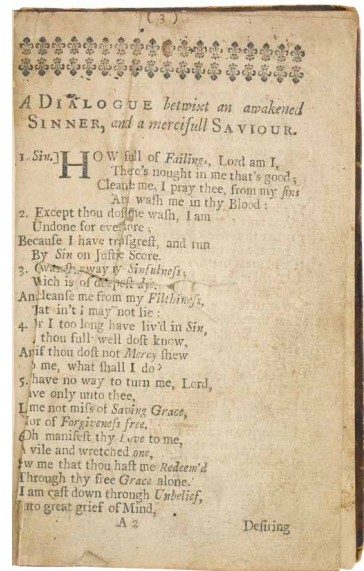 ( 3 )
A DIALOGUE betwixt an awakened
SINNER, and a mercifull SAVIOUR.
1 Sin.] HOW full of Failings, Lord am I,
There's nought in me that's good;
Cleanse me, I pray thee, from my sins
And wash me in thy Blood:
2. Except thou dost me wash, I am
Undone for evermore;
Because I have trasgrest, and run
By Sin on Justice Score.
3. away my Sinfulness;
Which is of deepest dye.
And cleanse me from my Filthiness,
That in't I may not lie:
4. For I too long have liv'd in Sin,
thou full well dost know,
And if thou dost not Mercy shew
to me, what shall I do?
5. I have no way to turn me, Lord,
save only unto thee,
Let me not miss of Saving Grace,
Nor of Forgiveness free.
6 Oh manifest thy Love to me,
A vile and wretched one,
Shew me that thou hast me Redeem'd
Through thy free Grace alone.
I am cast down through Unbelief,
Into great grief of Mind,
A 2 Desiring